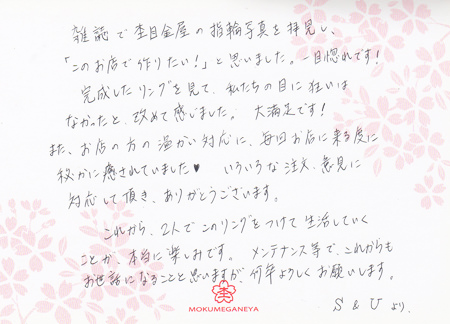 雑誌で杢目金屋の指輪写真を拝見し、
「このお店で作りたい!」と思いました。一目惚れです!
完成したリングを見て、私たちの目に狂いは
なかったと、改めて感じました。大満足です!
また、お店の方の温かい対応に、毎回お店に来る度に
秘かに癒されていました♥ いろいろな注文、意見に
対応して頂き、ありがとうございます。
これから、2人でこのリングをつけて生活していく
ことが、本当に楽しみです。メンテナンス等で、これからも
お世話になることと思いますが、何卒よろしくお願いします。
S & U より、
MOKUMEGANEYA